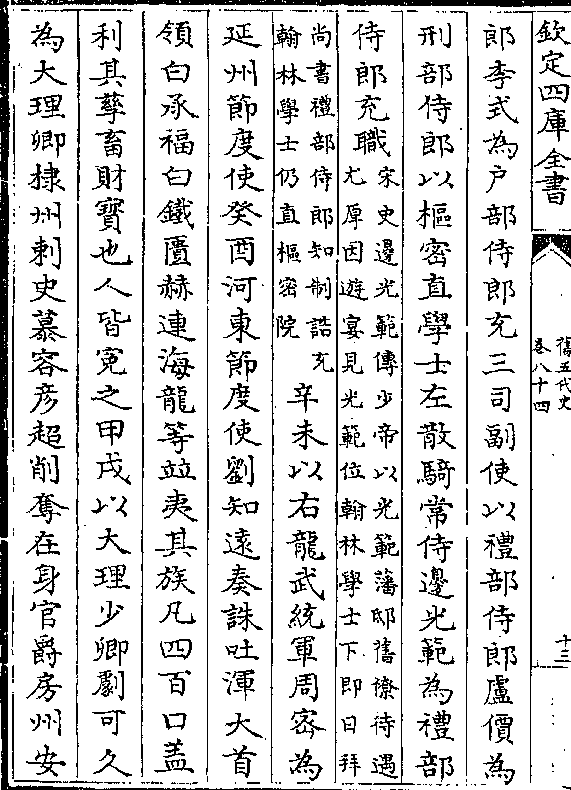 欽定四庫全書
舊五代史
卷八十四
十三
郎李式為戶部侍郎充三司副使以禮部侍郎盧價為
刑部侍郎以樞密直學士左散騎常侍邊光範為禮部
侍郎充職宋史邊光範傳少帝以光範藩邸舊僚待遇
尤厚因遊宴見光範位翰林學士下即日拜
尚書禮部侍郎知制誥充
翰林學士仍直樞密院
辛未以右龍武統軍周密為
延州節度使癸酉河東節度使劉知遠奏誅吐渾大首
領白承福白鐵匱赫連海龍等竝夷其族凡四百口盖
利其孳畜財寶也人皆寃之甲戌以大理少卿劇可久
為大理卿棣州刺史慕容彥超削奪在身官爵房州安